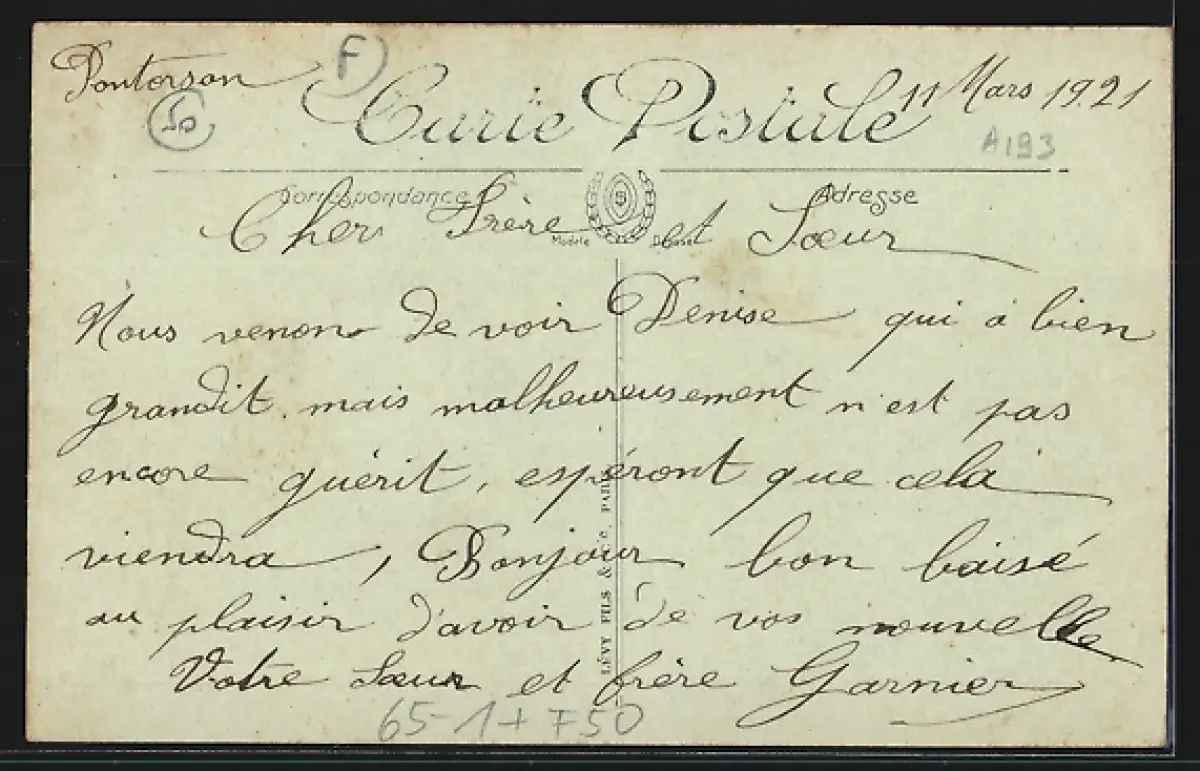 Pontorson F 11 Mars 1921
50
Carte Postale
A193
Correspondance Adresse
Cher Frère et Sœur
Modèle Déposé
Nous venons de voir Denise qui à bien
grandit mais malheureusement n'est pas
encore guérit, espéront que cela
viendra, Bonjour bon baisé
au plaisir d'avoir de vos nouvelle
Votre Sœur et frère Garnier
LÉVY FILS & Cie. PARIS
65-1+ F50